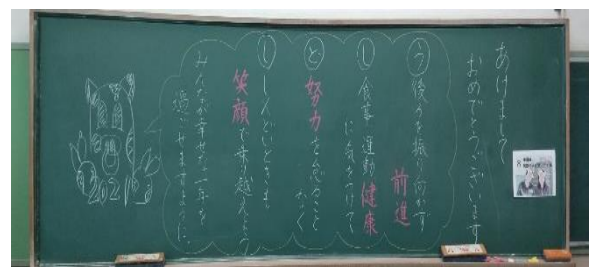 あけまして
おめでとうございます
う後ろを振り向かず
前進
し食事、運動
に気をつけて
健康
と
努力を忘れること
なく
ししんどいときも
笑顔で乗り越えよう
みんなが幸せな一年を
過ごせますように。
2021